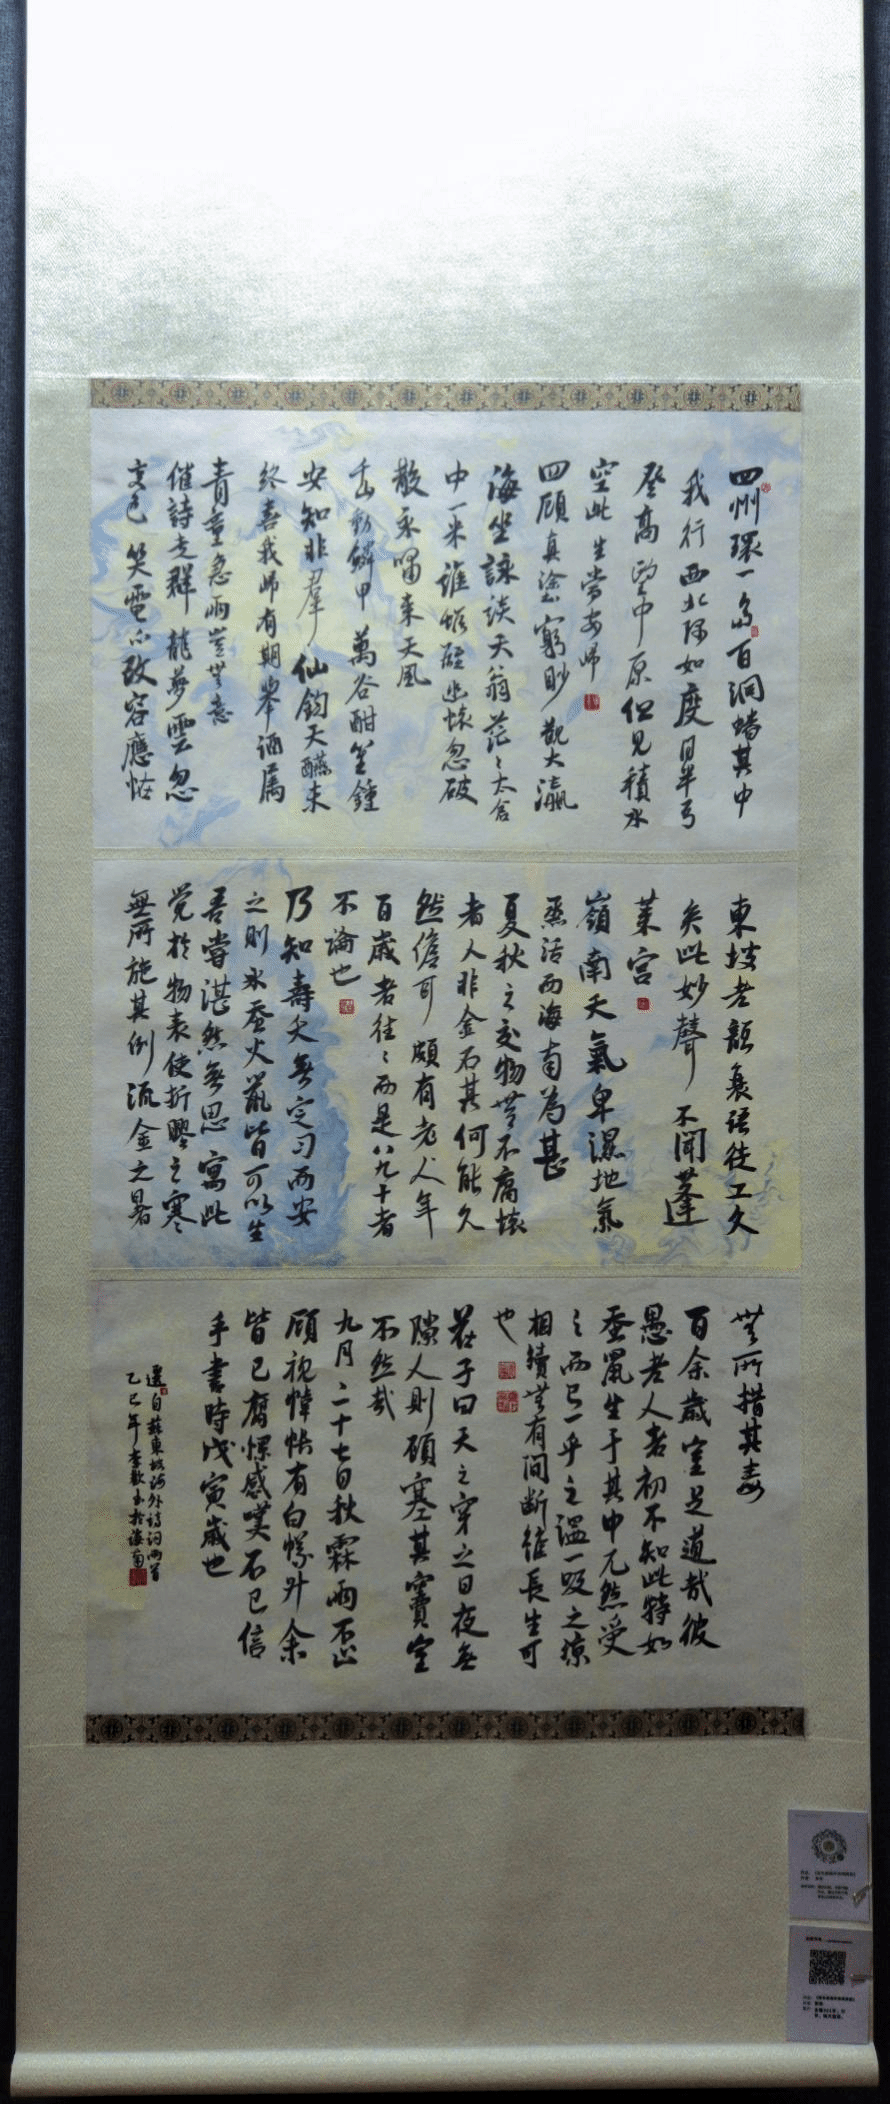 四州環一島百洞蟠其中
我行西北隅如度月半弓
登高望中原但見積水
空此生當安歸
四顧真塗窮眇觀大瀛
海坐詠談天翁茫〻太倉
中一米誰雌雄幽懷忽破
散永嘯來天風
千山動鱗甲萬谷酣笙鐘
安知非羣仙鈞天醼未
終喜我歸有期舉酒屬
青童急雨豈無意
催詩走群龍夢雲忽
變色笑電亦改容應怪
東坡老顏衰語徒工久
矣此妙聲不聞蓬
萊宮
嶺南天氣卑濕地氣
蒸活而海南為甚
夏秋之交物無不腐壞
者人非金石其何能久
然儋耳頗有老人年
百歲者往〻而是八九十者
不論也
乃知壽夭無定習而安
之則冰蚕火鼠皆可以生
吾嘗湛然無思寓此
覺於物表使折膠之寒
無所施其例流金之暑
無所措其毒
百余歲豈足道哉彼
愚老人者初不知此特如
蚕鼠生于其中兀然受
之而已一乎之溫一吸之涼
相續無有間斷雖長生可
也
莊子曰天之穿之日夜無
隙人則顧塞其竇豈
不然哉
九月二十七日秋霖雨不止
顧視幃帳有白蟻升余
皆已腐懔感嘆不已信
手書時戊寅歲也
選自蘇東坡海外詩詞兩首
乙巳年李歡書於海南